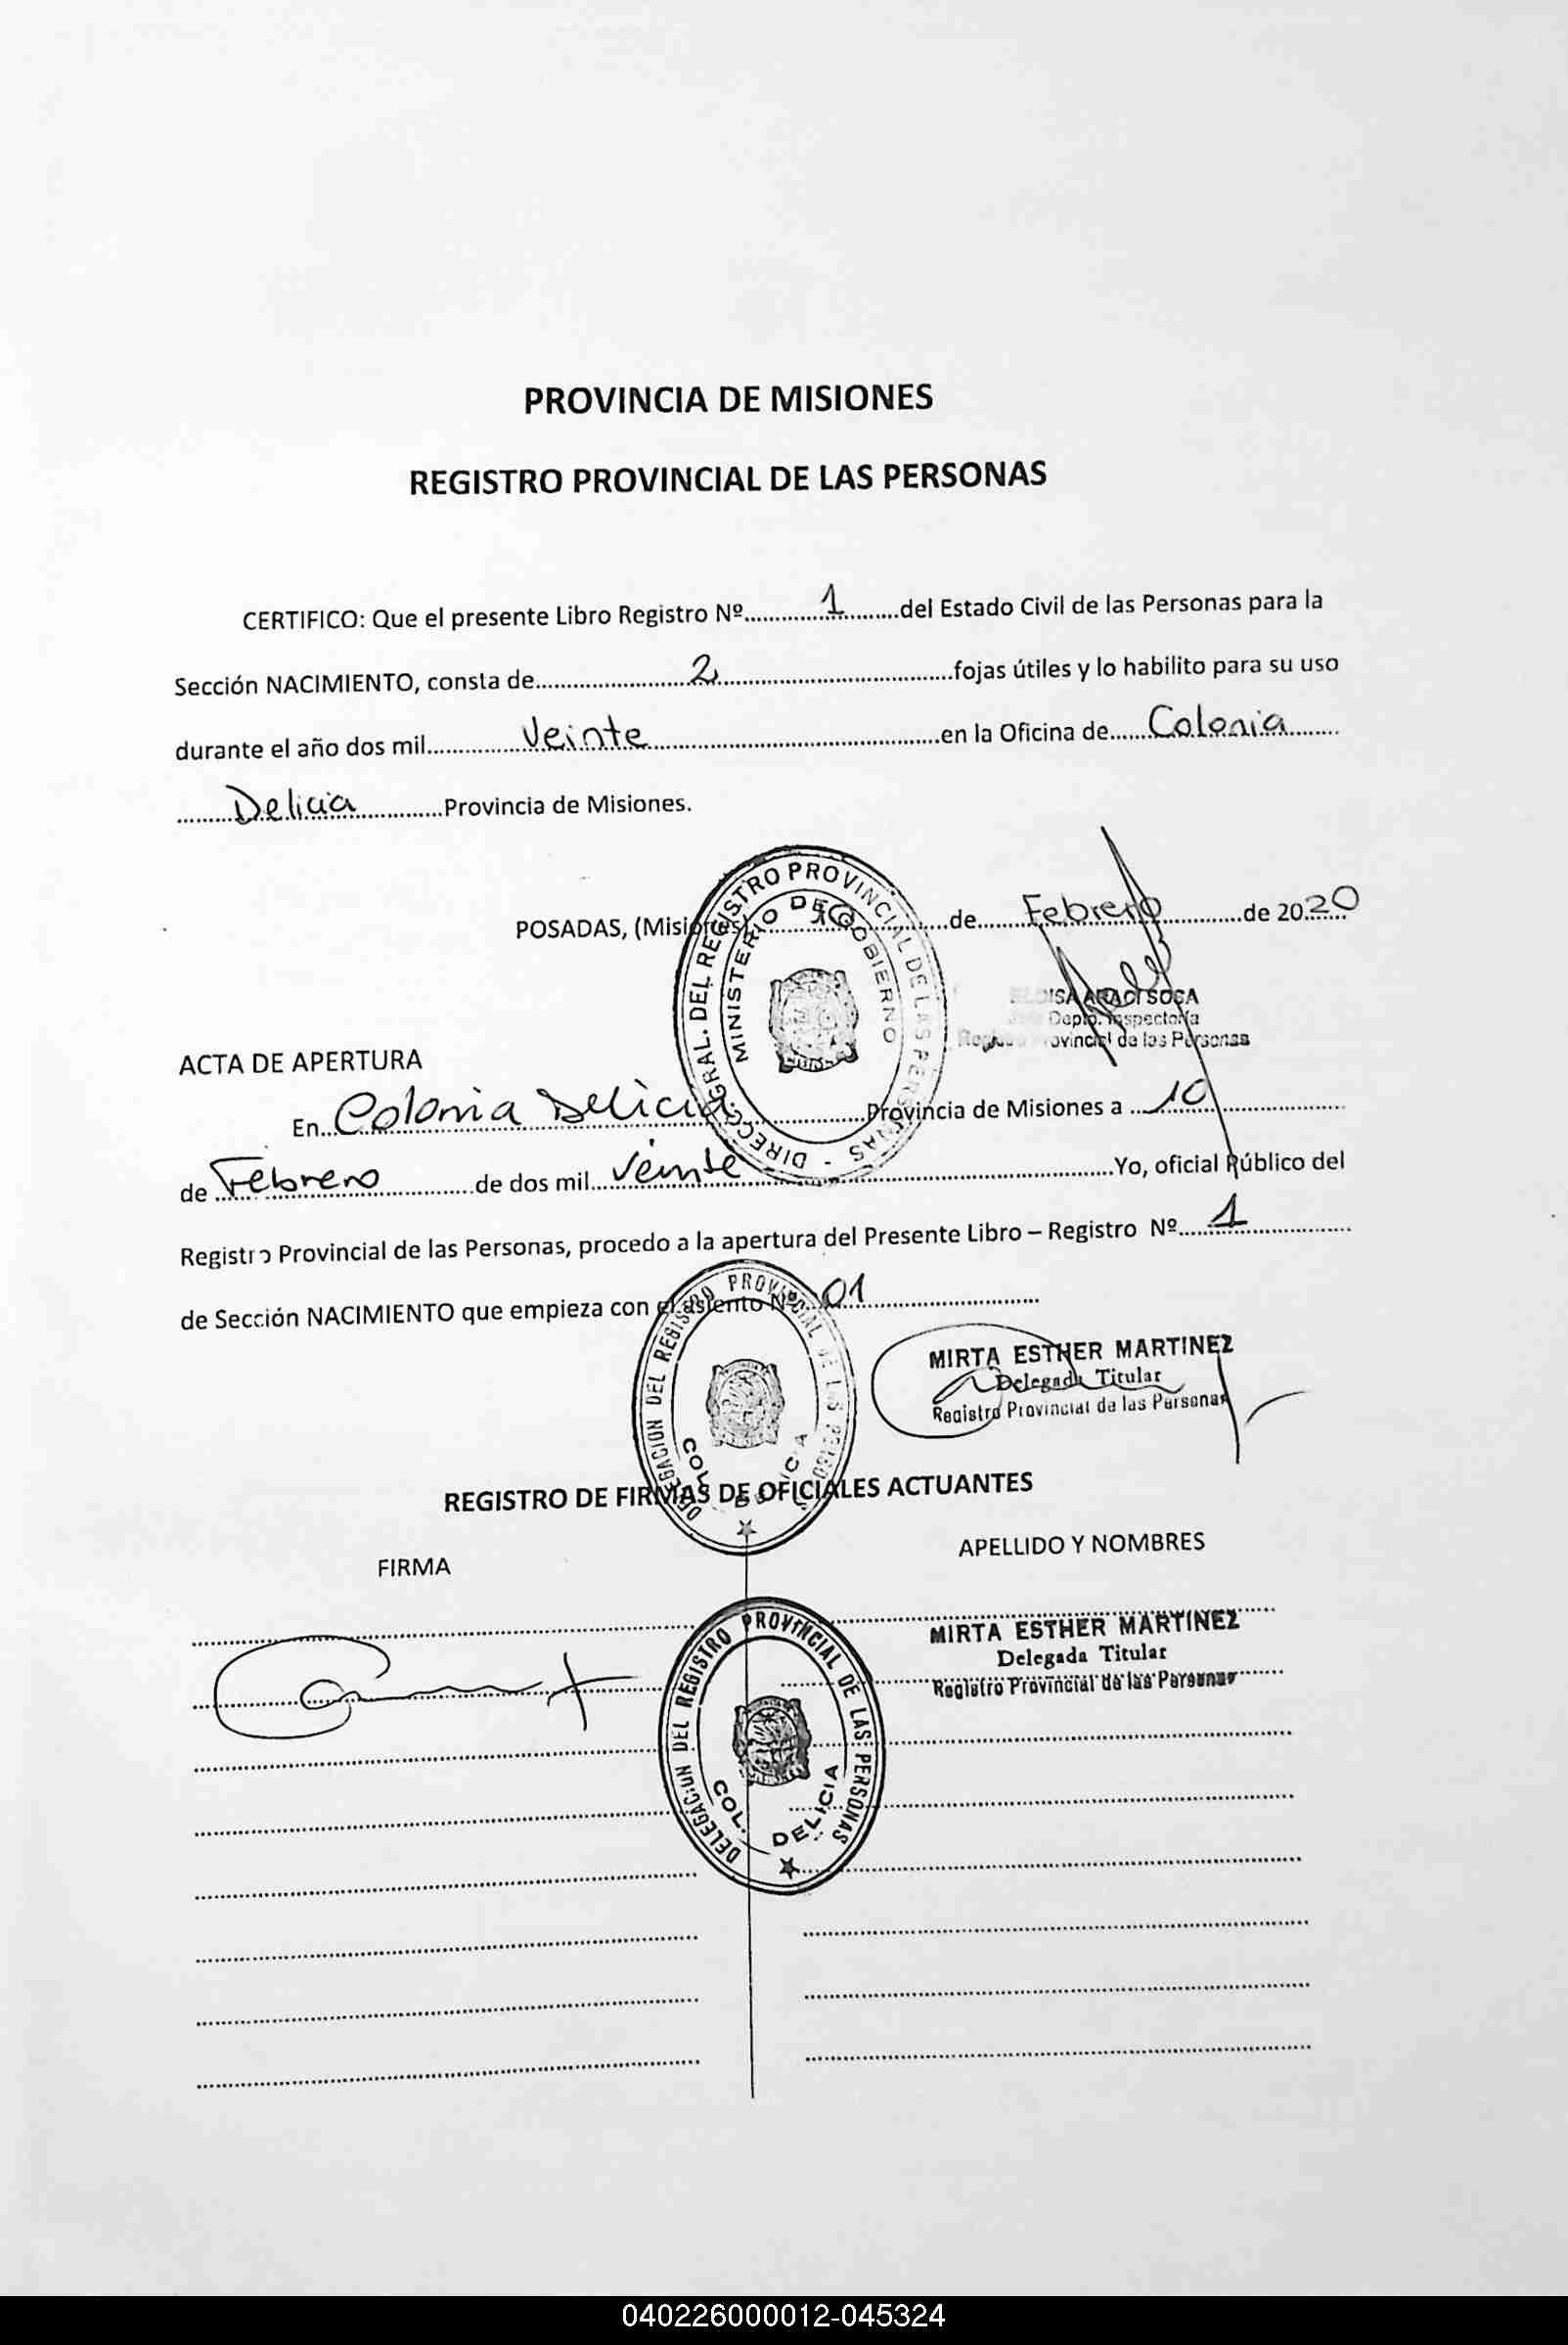 PROVINCIA DE MISIONES
REGISTRO PROVINCIAL DE LAS PERSONAS
CERTIFICO: Que el presente Libro Registro Nº 1 del Estado Civil de las Personas para la
Sección NACIMIENTO, consta de 2 fojas útiles y lo habilito para su uso
durante el año dos mil Veinte en la Oficina de Colonia
Delicia Provincia de Misiones.
POSADAS, (Misiones) de Febrero de 2020
DIRECC. GRAL. DEL REGISTRO PROVINCIAL DE LAS PERSONAS
MINISTERIO DE GOBIERNO
SOSA
Depto. Inspectoría
Provincial de las Personas
ACTA DE APERTURA
En Colonia Delicia Provincia de Misiones a 10
de Febrero de dos mil Veinte Yo, oficial Público del
Registro Provincial de las Personas, procedo a la apertura del Presente Libro – Registro Nº 1
de Sección NACIMIENTO que empieza con el asiento Nº 01
DELEGACION DEL REGISTRO PROVINCIAL DE LAS PERSONAS
COL. DELICIA
MIRTA ESTHER MARTINEZ
Delegada Titular
Registro Provincial de las Personas
REGISTRO DE FIRMAS DE OFICIALES ACTUANTES
FIRMA APELLIDO Y NOMBRES
MIRTA ESTHER MARTINEZ
Delegada Titular
Registro Provincial de las Personas
DELEGACION DEL REGISTRO PROVINCIAL DE LAS PERSONAS
COL. DELICIA
040226000012-045324